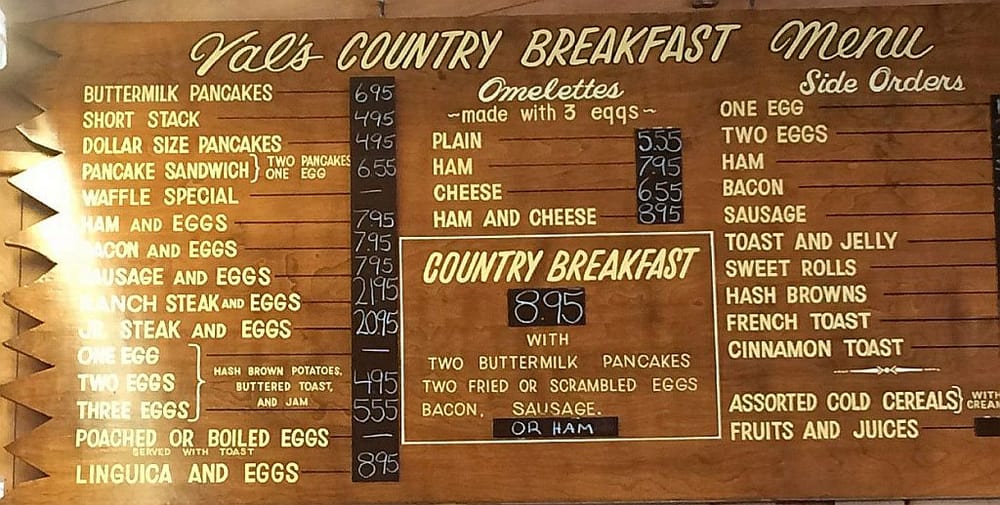 Val's COUNTRY BREAKFAST Menu
BUTTERMILK PANCAKES 695
SHORT STACK 495
DOLLAR SIZE PANCAKES 495
PANCAKE SANDWICH } TWO PANCAKES ONE EGG 655
WAFFLE SPECIAL —
HAM AND EGGS 795
BACON AND EGGS 795
SAUSAGE AND EGGS 795
RANCH STEAK AND EGGS 2195
JR. STEAK AND EGGS 2095
ONE EGG —
TWO EGGS 495
THREE EGGS 555
HASH BROWN POTATOES,
BUTTERED TOAST,
AND JAM
POACHED OR BOILED EGGS —
SERVED WITH TOAST
LINGUICA AND EGGS 895
Omelettes
~made with 3 eggs~
PLAIN 5.55
HAM 7.95
CHEESE 6.55
HAM AND CHEESE 895
COUNTRY BREAKFAST
8.95
WITH
TWO BUTTERMILK PANCAKES
TWO FRIED OR SCRAMBLED EGGS
BACON, SAUSAGE.
OR HAM
Side Orders
ONE EGG
TWO EGGS
HAM
BACON
SAUSAGE
TOAST AND JELLY
SWEET ROLLS
HASH BROWNS
FRENCH TOAST
CINNAMON TOAST
ASSORTED COLD CEREALS } WITH CREAM
FRUITS AND JUICES